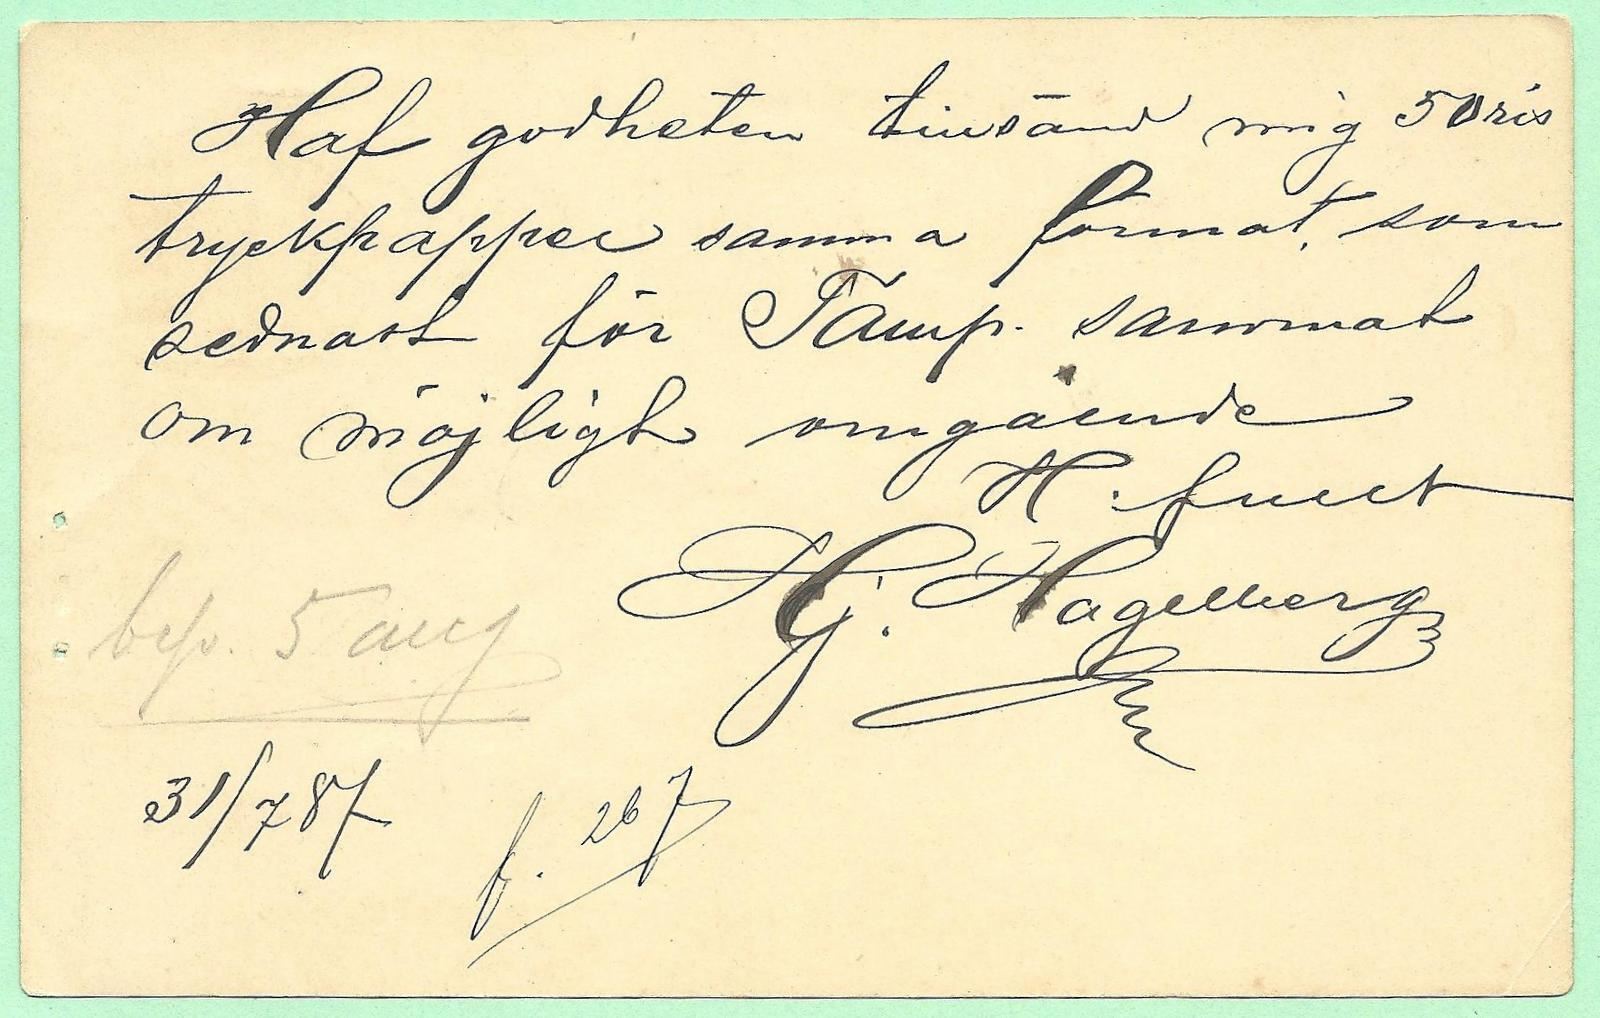 Haf godheten tinsänd mig 50 ris
tryckpapper samma format, som
sednast för Tamp. sammat
om möjligt omgående
H.
Hj. Hagelberg
besv. 5 aug
31/7 87
f. 267